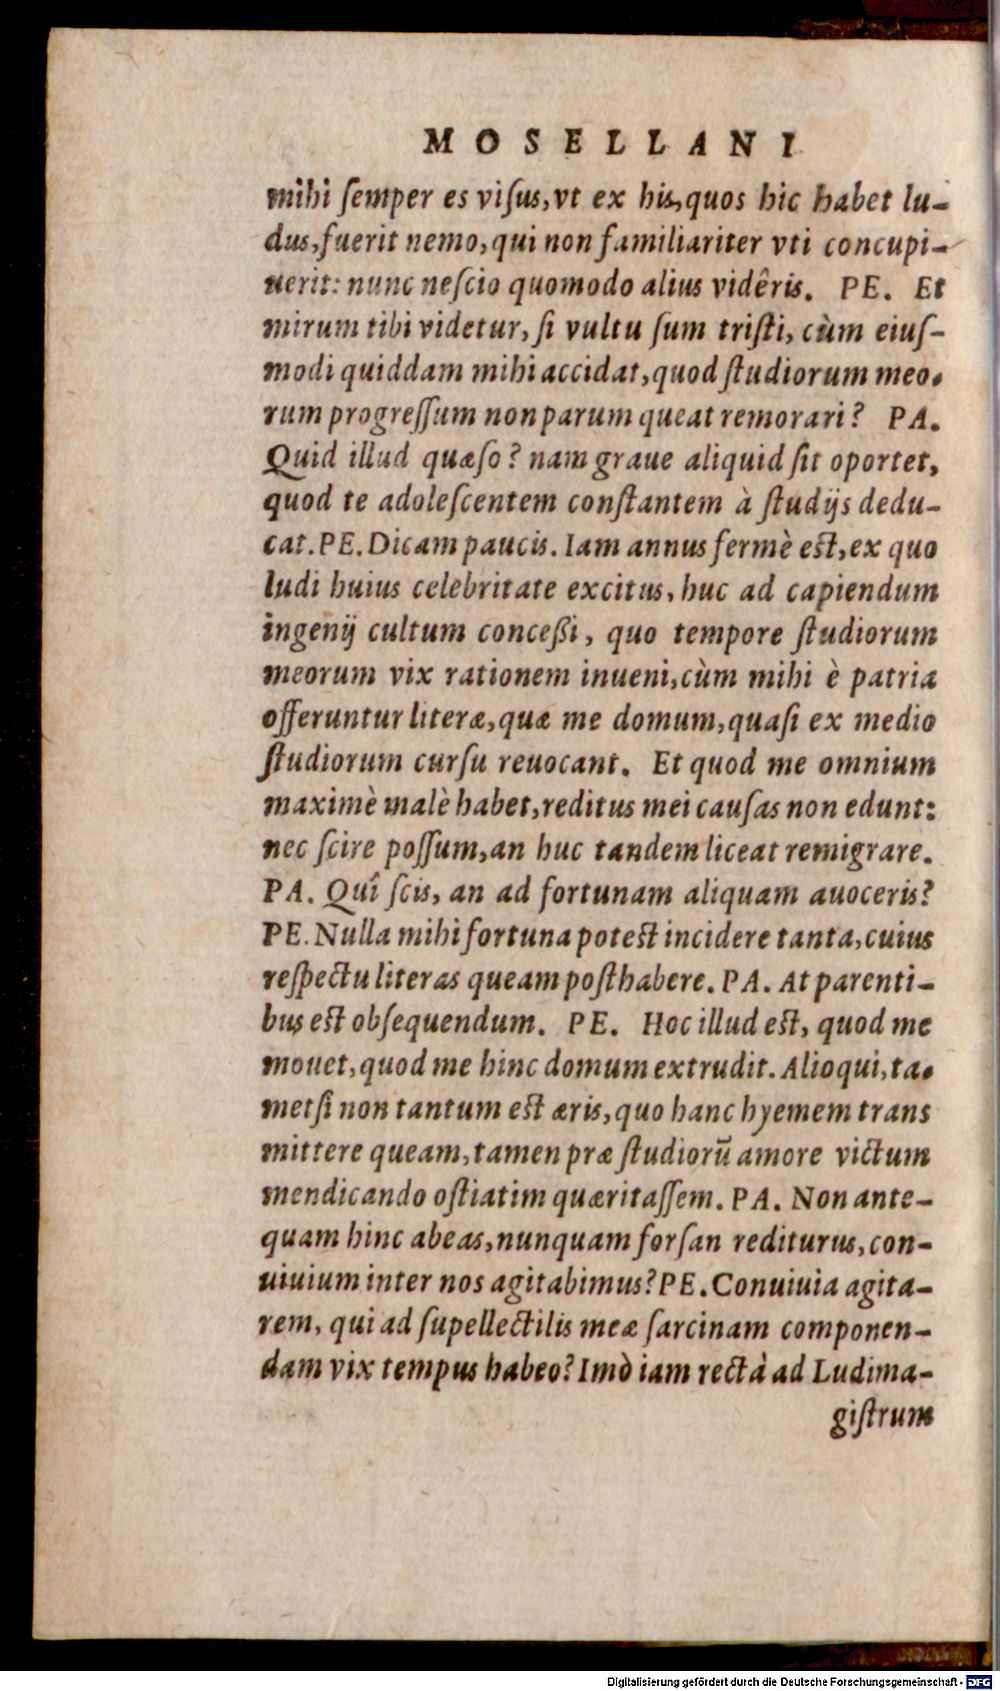 MOSELLANI
mihi ſemper es viſus, vt ex his, quos hic habet lu-
dus, fuerit nemo, qui non familiariter vti concupi-
uerit: nunc neſcio quomodo alius vidêris. PE. Et
mirum tibi videtur, ſi vultu ſum triſti, cùm eiuſ-
modi quiddam mihi accidat, quod ſtudiorum meo-
rum progreſſum non parum queat remorari? PA.
Quid illud quæſo? nam graue aliquid ſit oportet,
quod te adoleſcentem conſtantem à ſtudijs dedu-
cat. PE. Dicam paucis. Iam annus fermè eſt, ex quo
ludi huius celebritate excitus, huc ad capiendum
ingenij cultum conceßi, quo tempore ſtudiorum
meorum vix rationem inueni, cùm mihi è patria
offeruntur literæ, quæ me domum, quaſi ex medio
ſtudiorum curſu reuocant. Et quod me omnium
maximè malè habet, reditus mei cauſas non edunt:
nec ſcire poſſum, an huc tandem liceat remigrare.
PA. Quî ſcis, an ad fortunam aliquam auoceris?
PE. Nulla mihi fortuna poteſt incidere tanta, cuius
reſpectu literas queam poſthabere. PA. At parenti-
bus eſt obſequendum. PE. Hoc illud eſt, quod me
mouet, quod me hinc domum extrudit. Alioqui, ta-
metſi non tantum eſt æris, quo hanc hyemem trans
mittere queam, tamen præ ſtudiorū amore victum
mendicando oſtiatim quæritaſſem. PA. Non ante-
quam hinc abeas, nunquam forſan rediturus, con-
uiuium inter nos agitabimus? PE. Conuiuia agita-
rem, qui ad ſupellectilis meæ ſarcinam componen-
dam vix tempus habeo? Imò iam rectà ad Ludima-
giſtrum
Digitalisierung gefördert durch die Deutsche Forschungsgemeinschaft - DFG